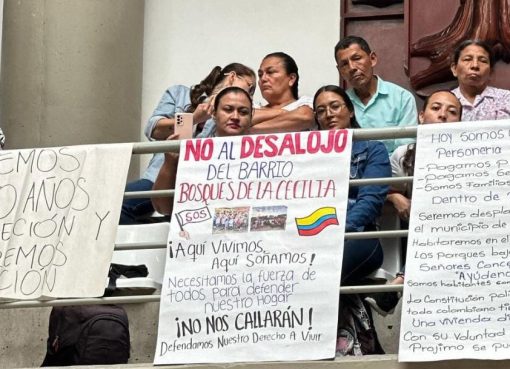 EMOS
0 AÑOS
ECIÓN Y
EMOS
CIÓN
NO AL DESALOJO
DEL BARRIO
BOSQUES DE LA CECILIA
SOS
¡AQUÍ VIVIMOS,
AQUÍ SOÑAMOS!
Necesitamos la fuerza de
todos para defender
nuestro Hogar
¡NO NOS CALLARÁN!
Defendamos Nuestro Derecho A Vivir
HOY Somos
Personeria
- Pagamos P
- Pargamos Se
- Somos Familias
Dentro de
Seremos despla
el municipio de
Habitaremos en el
Los Parques baj
Señores Conce
Ayúdenc
La Constitución polit
todo colombiano tien
Una vivienda d
Con su voluntad
Projimo Se pue